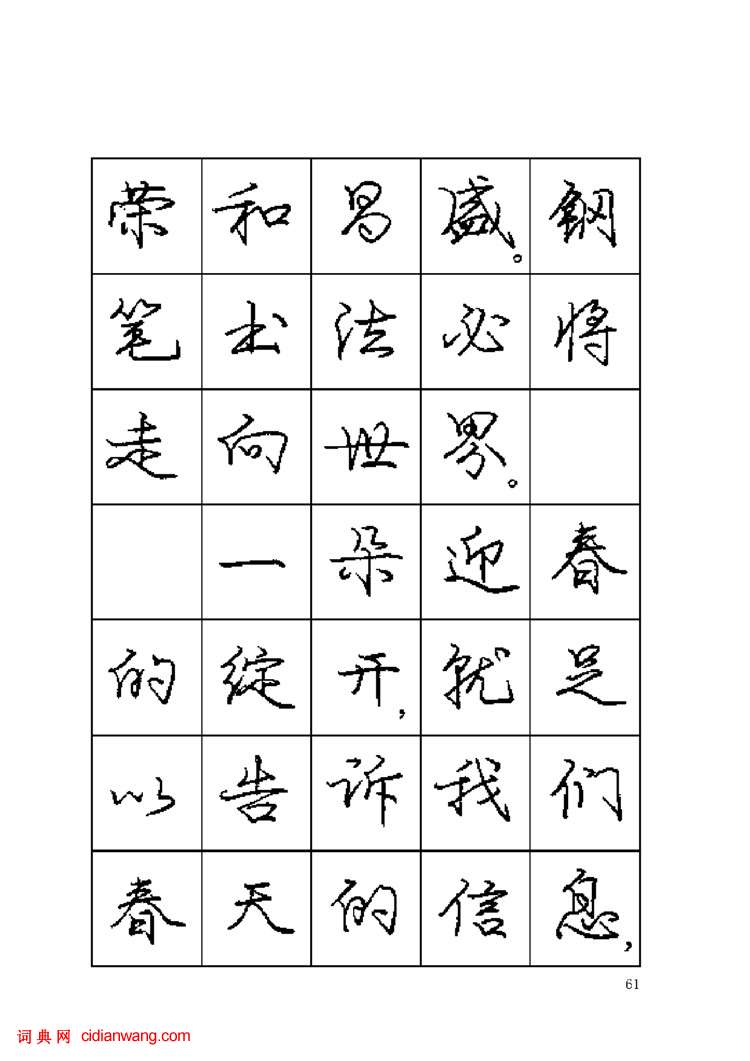 荣和昌盛。钢
笔书法必将
走向世界。
一朵迎春
的绽开,就足
以告诉我们
春天的信息,
61
词典网 cidianwang.com